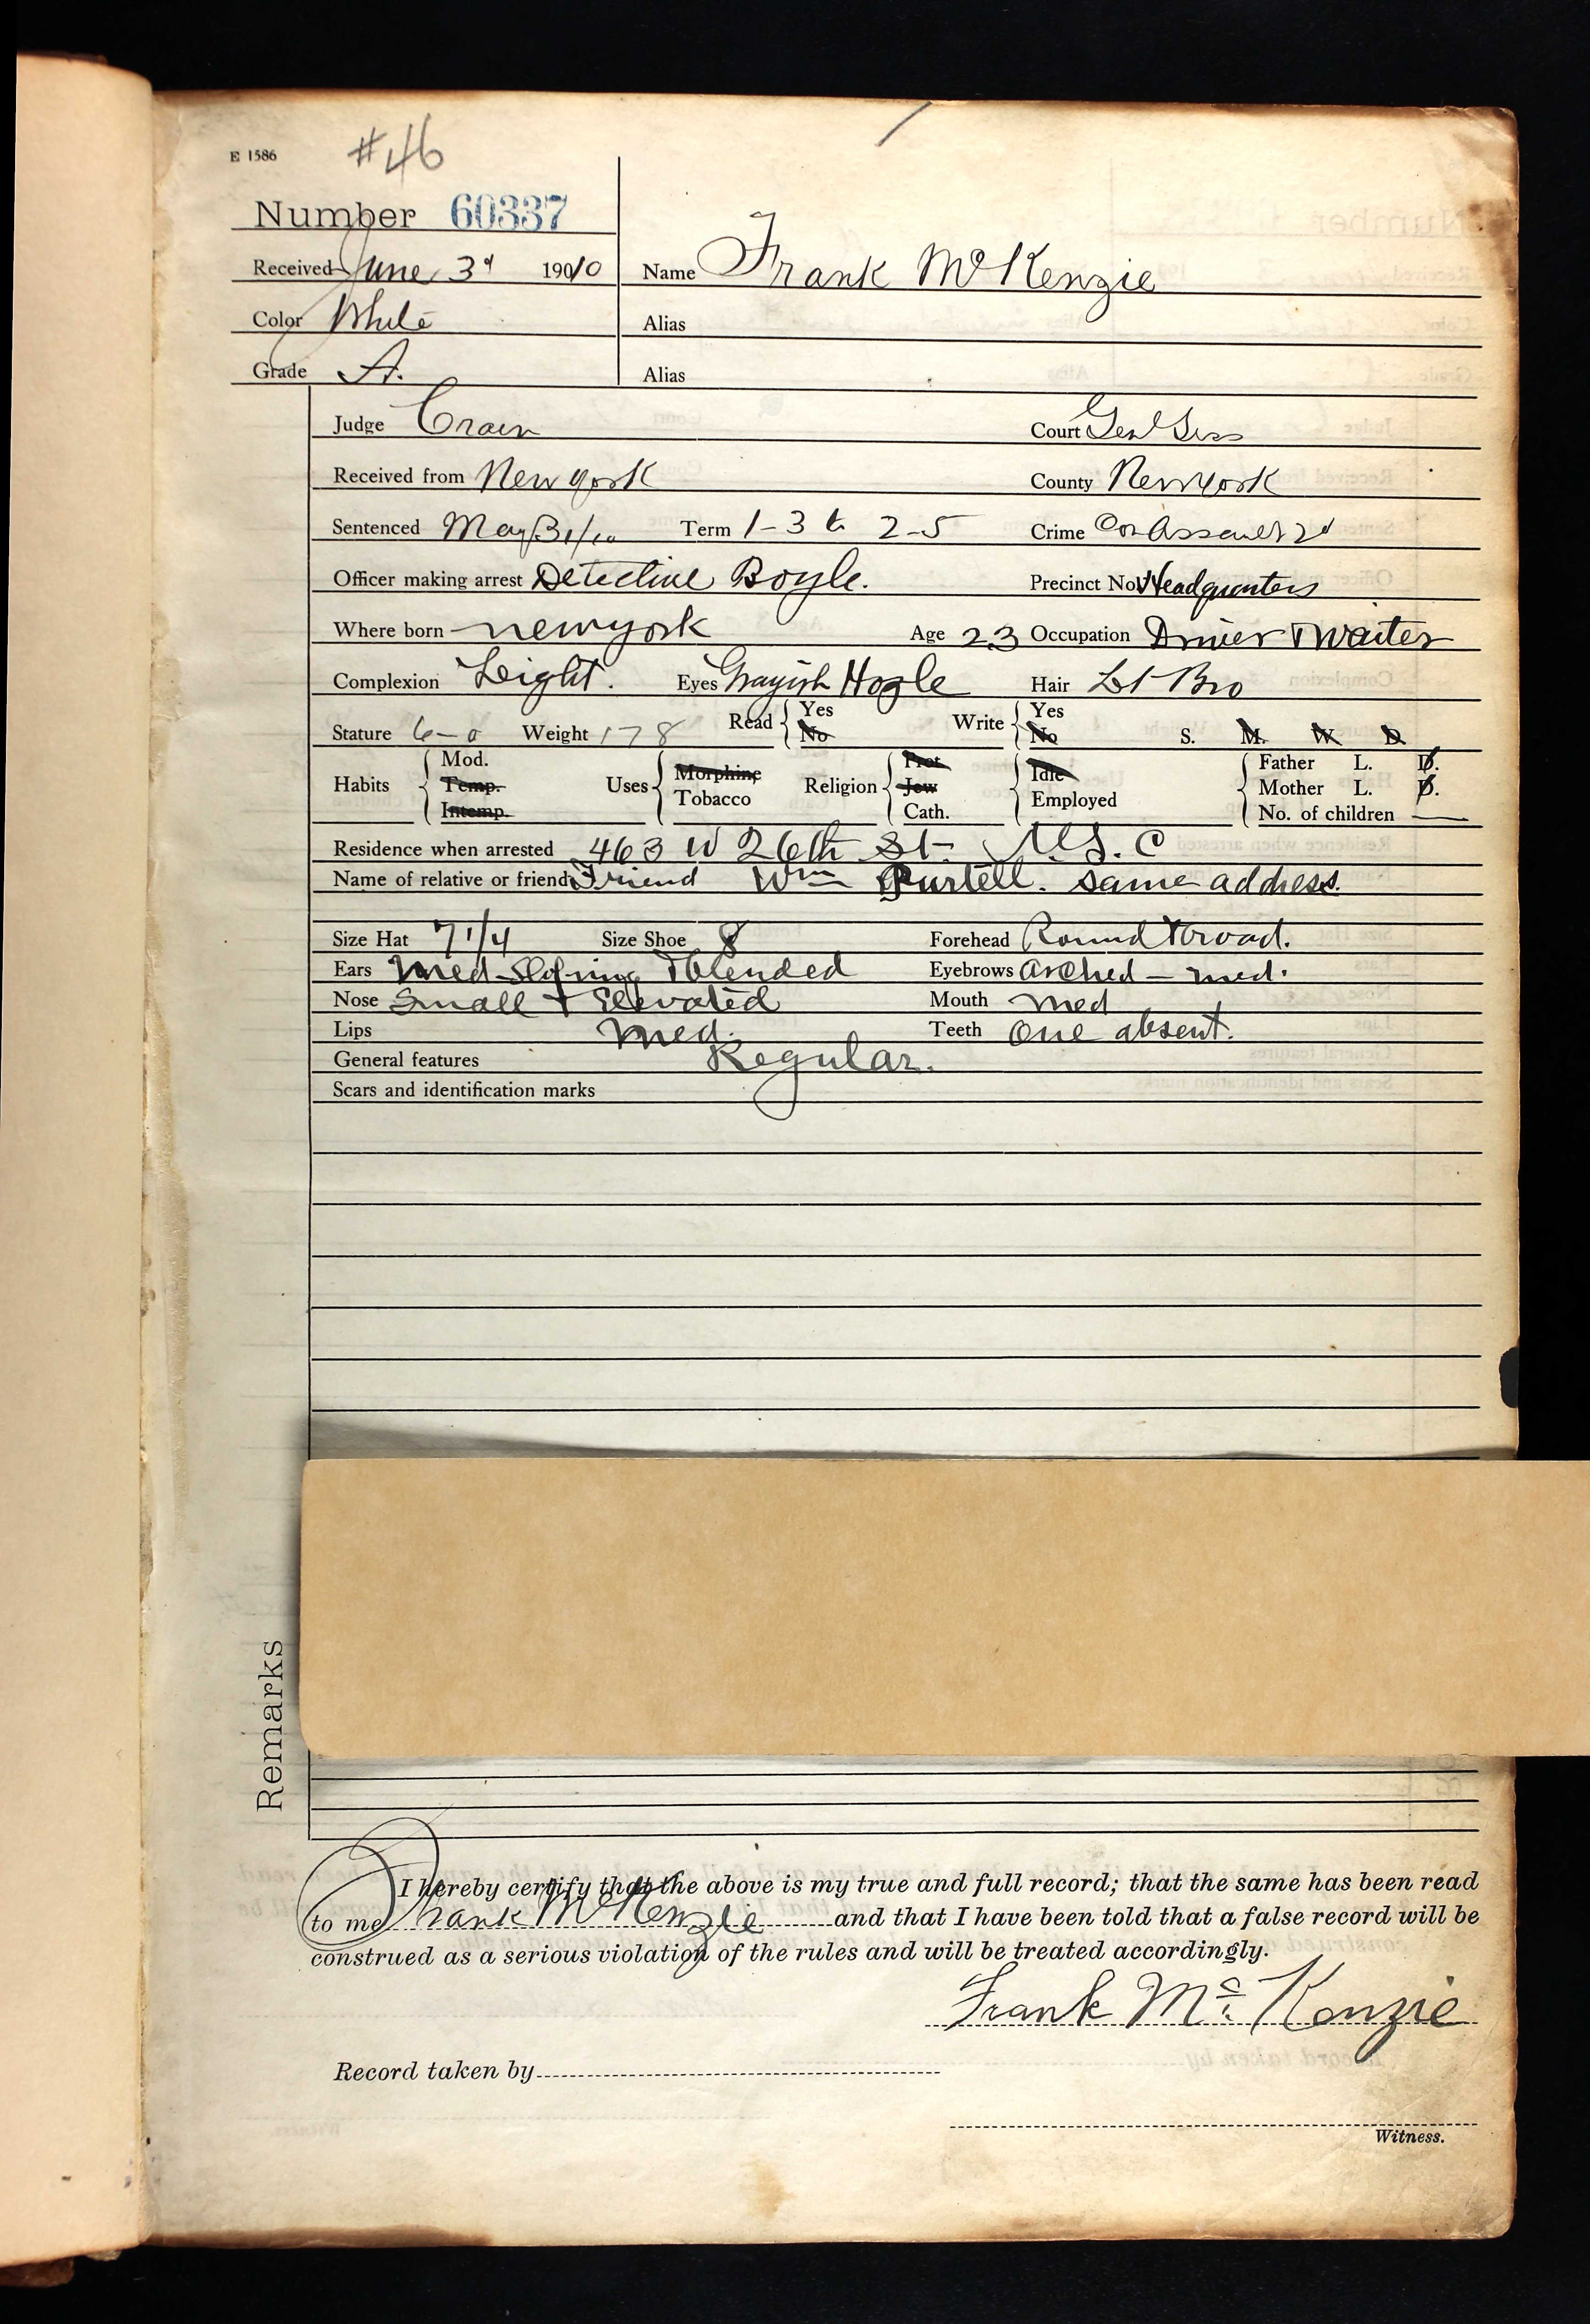 E 1586 #46
Number 60337
Received June 3d 1910 Name Frank McKenzie
Color White Alias
Grade A. Alias
Judge Crain Court Genl Sess
Received from New York County New York
Sentenced May 31/10 Term 1-3 to 2-5 Crime Con Assault 2d
Officer making arrest Detective Boyle. Precinct No. Headquarters
Where born New York Age 23 Occupation Driver & Waiter
Complexion Light. Eyes Grayish Hazle Hair Lt Bro
Stature 6-0 Weight 178 Read Yes No Write Yes No S. M. W. D.
Habits Mod. Temp. Intemp. Uses Morphine Tobacco Religion Prot. Jew Cath. Idle Employed Father L. D. Mother L. D. No. of children —
Residence when arrested 463 W 26th St. N.Y.C
Name of relative or friend Friend Wm Purtell. same address.
Size Hat 7 1/4 Size Shoe 8 Forehead Round & broad.
Ears Med-Sloping & blended Eyebrows Arched - med.
Nose Small & Elevated Mouth Med
Lips Med. Teeth One absent.
General features Regular.
Scars and identification marks
Remarks
I hereby certify that the above is my true and full record; that the same has been read
to me Frank McKenzie and that I have been told that a false record will be
construed as a serious violation of the rules and will be treated accordingly.
Frank Mc. Kenzie
Record taken by
Witness.